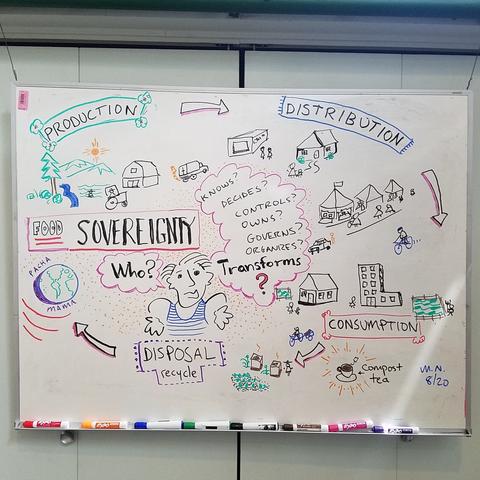 PRODUCTION
DISTRIBUTION
KNOWS?
DECIDES?
CONTROLS?
OWNS?
GOVERNS?
ORGANIZES?
Transforms
?
FOOD SOVEREIGNTY
Who?
PACHA
MAMA
$$
CONSUMPTION
DISPOSAL
recycle
Compost
tea
M.N.
8/20